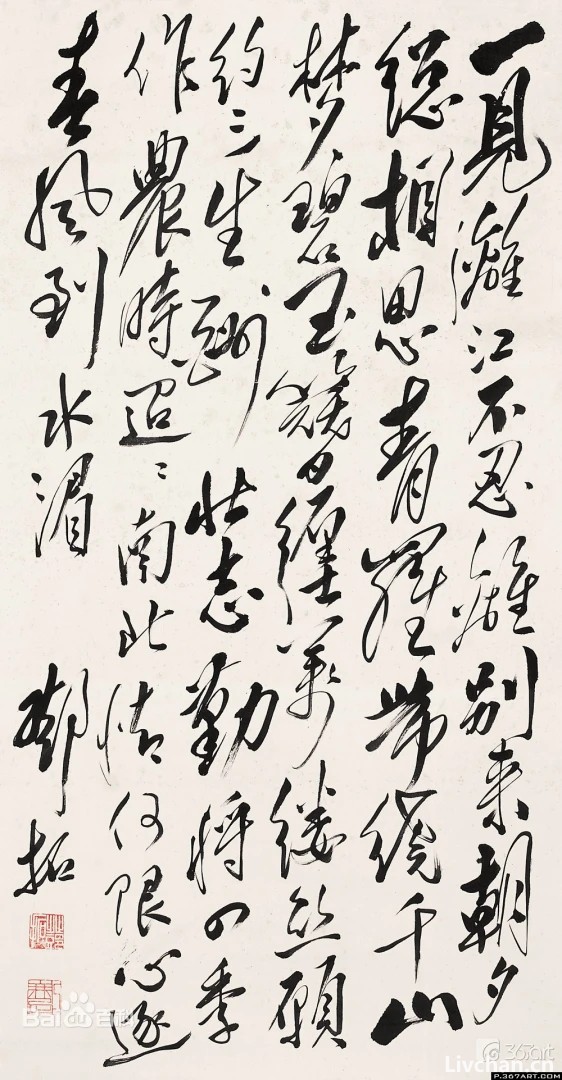 一見灕江不忍離別来朝夕
總相思青羅帶繞千山
梦碧玉簪纏万縷丝願
约三生酬壮志勤将四季
作農時迢〻南北情何限心逐
春風到水湄
鄧拓
Bai百科
367art
Livchan.cn
P.367ART.COM